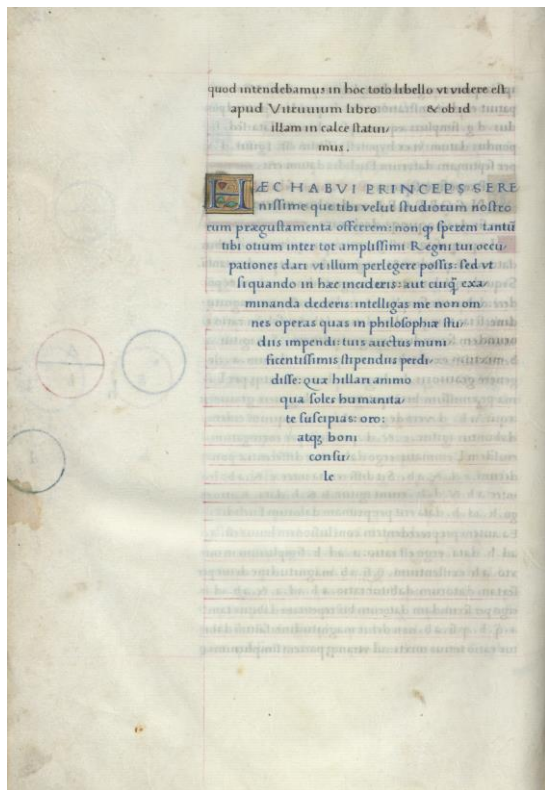 quod intendebamus in hoc toto libello vt videre est
apud Vitruuium libro & ob id
illam in calce statui/
mus.
HÆC HABVI PRINCEPS SERE
nissime que tibi velut studiorum nostro
rum prægustamenta offerrem: non ꝙ sperem tantū
tibi otium inter tot amplissimi Regni tui occu/
pationes dari vt illum perlegere possis: sed vt
si quando in hæc incideris: aut cuiq̃ exa/
minanda dederis intelligas me non om
nes operas quas in philosophiæ stu/
diis impendi: tuis auctus muni
ficentissimis stipendiis perdi/
disse: quæ hillari animo
qua soles humanita/
te suscipias: oro:
atq; boni
consu/
le